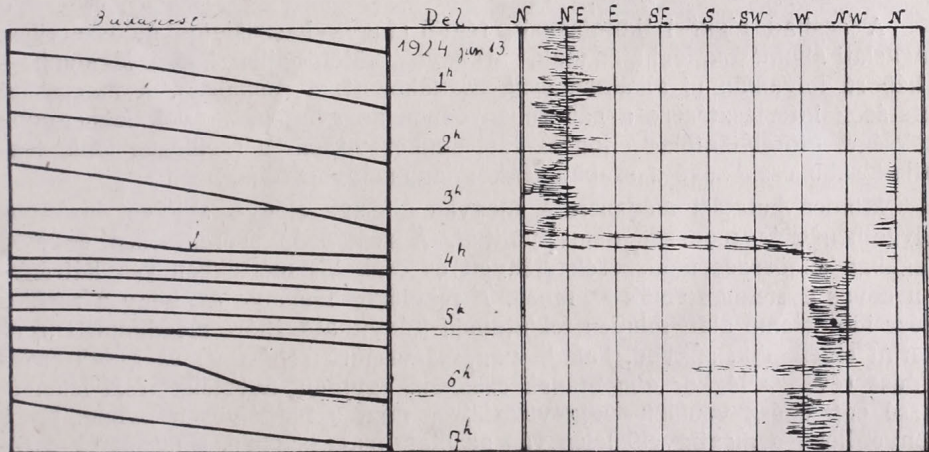 Dél N NE E SE S SW W NW N
1924 jun 13
1h
2h
3h
4h
5h
6h
7h